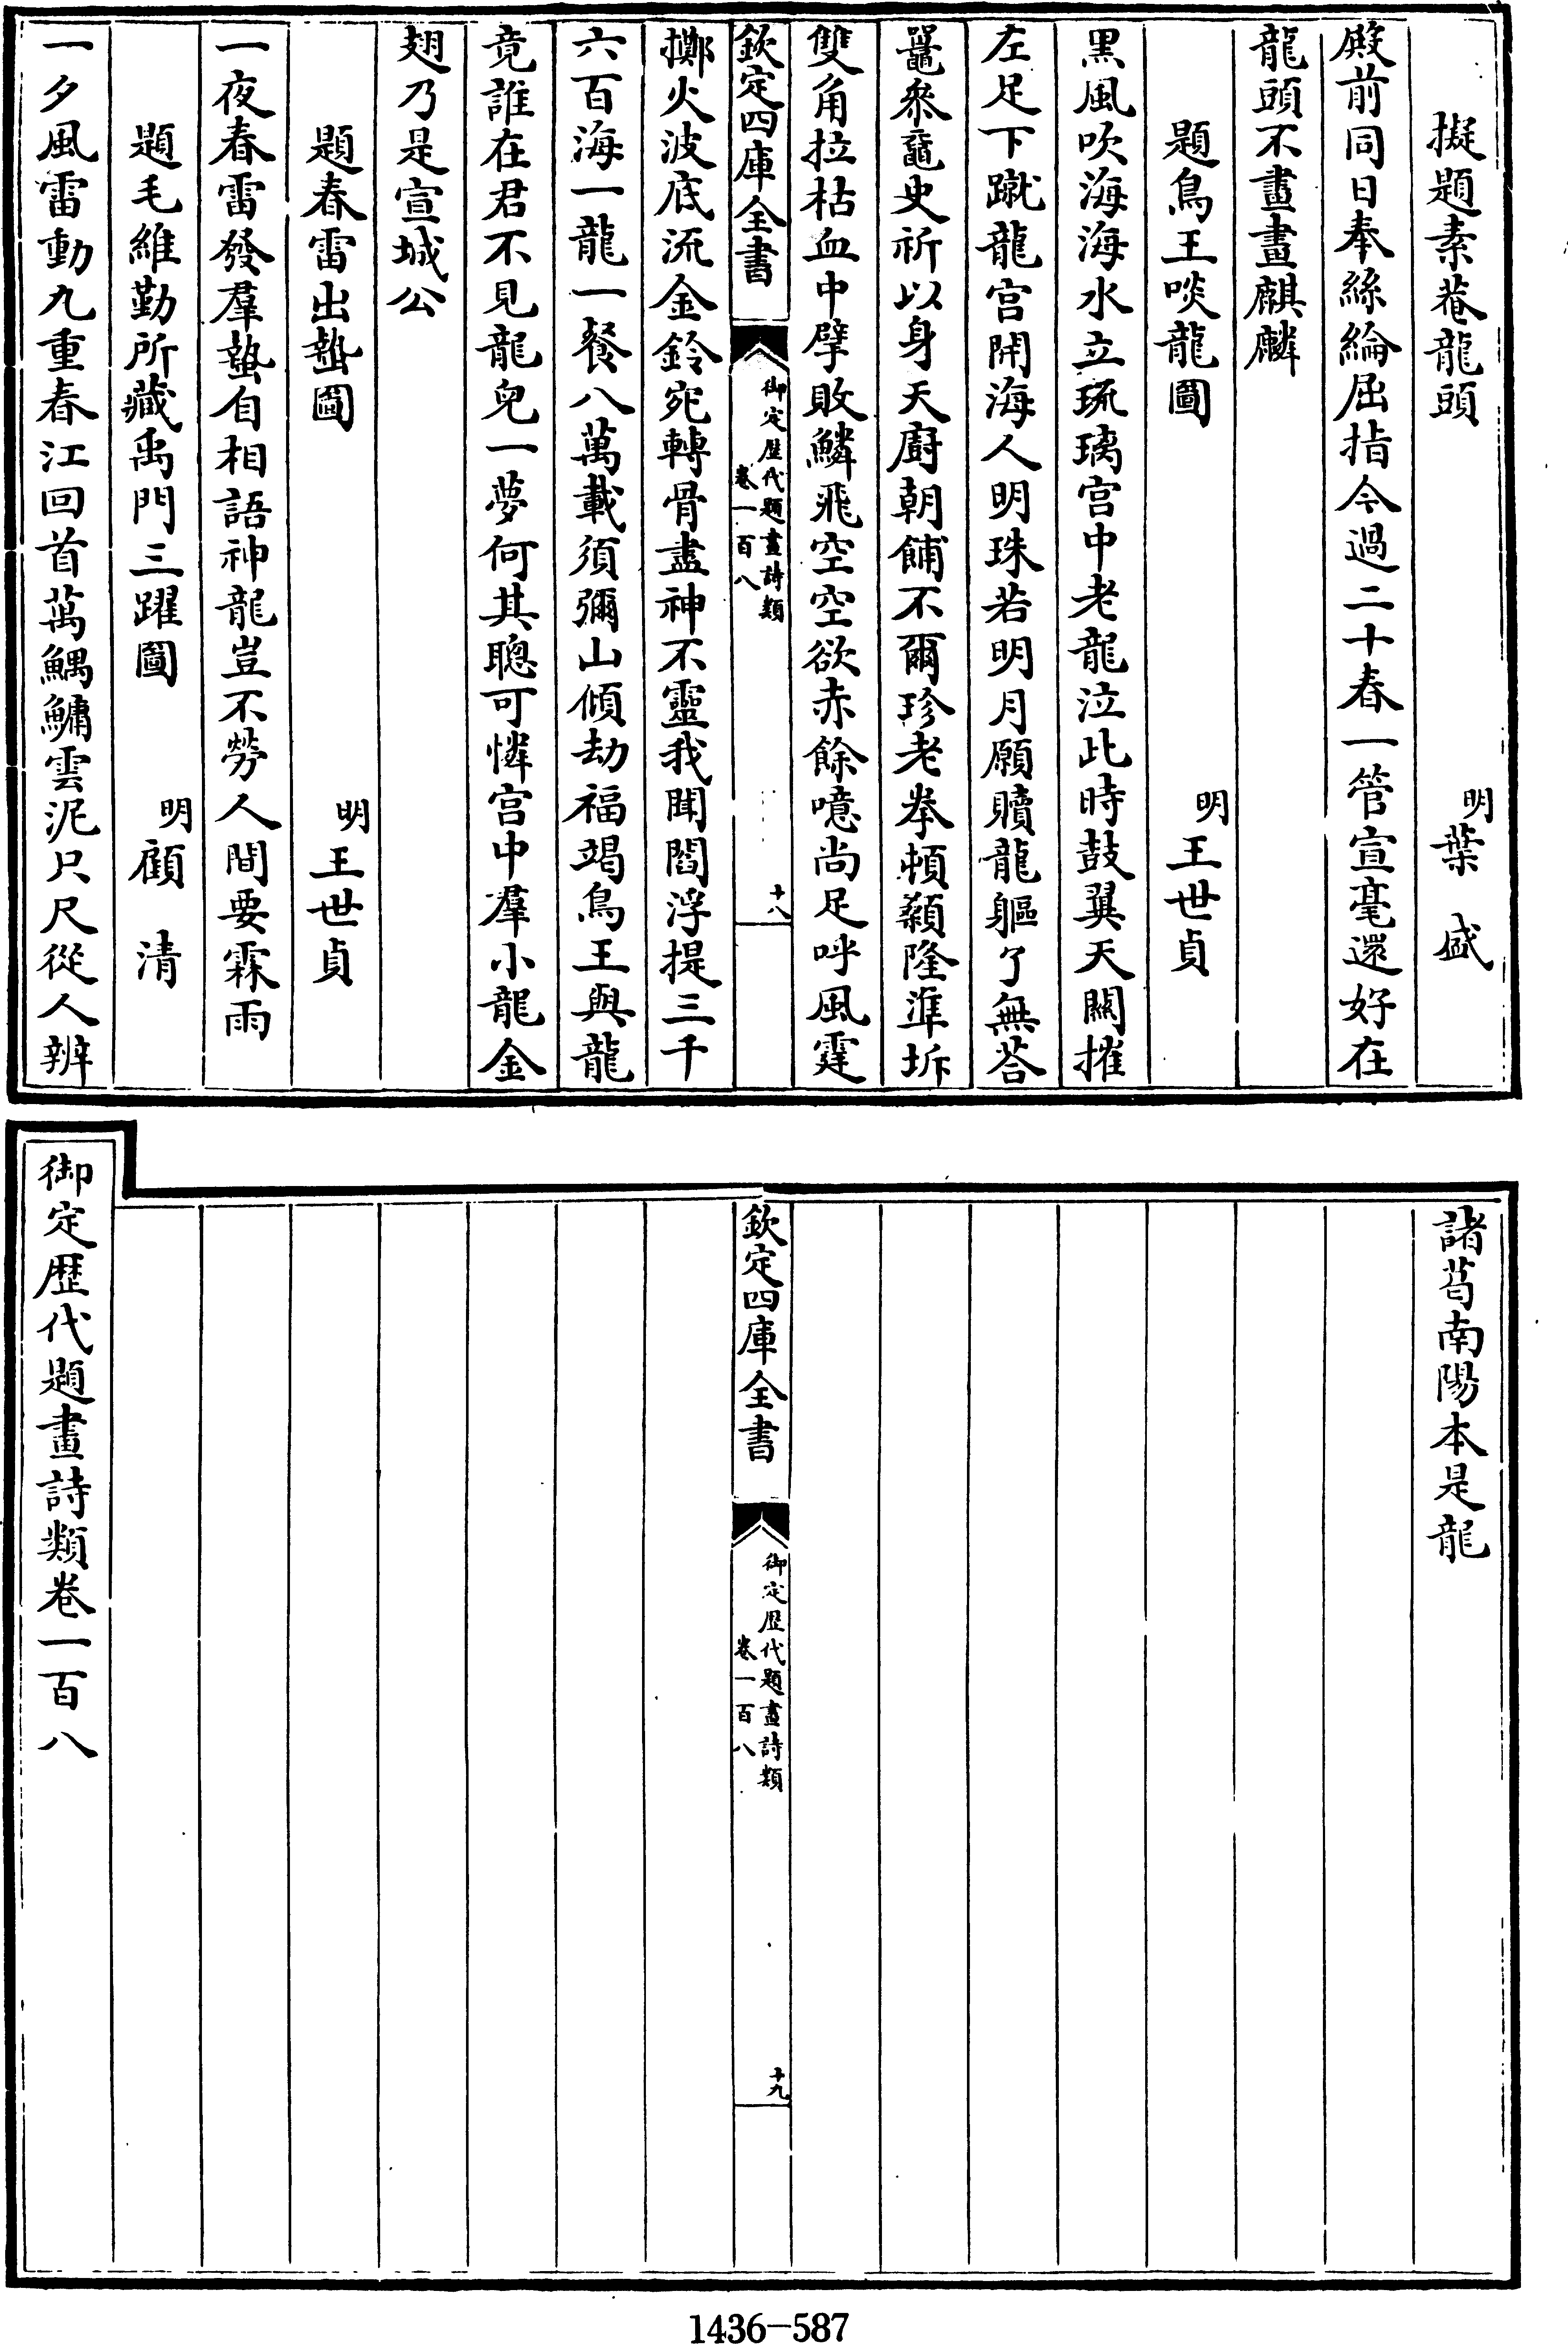 擬題素菴龍頭　明葉盛
殿前同日奉絲綸屈指今過二十春一管宣毫還好在
龍頭不畫畫麒麟
題鳥王啖龍圖　明王世貞
黑風吹海海水立琉璃宫中老龍泣此時鼓翼天關摧
左足下蹴龍宫開海人明珠若明月願贖龍軀了無荅
鼉㕘鼂史祈以身天廚朝餔不爾珍老拳頓顙隆準坼
雙角拉枯血中擘敗鱗飛空空欲赤餘噫尚足呼風霆
欽定四庫全書　御定歴代題畫詩類卷一百八　十八
擲火波底流金鈴宛轉骨盡神不靈我聞閻浮提三千
六百海一龍一餐八萬載須彌山傾劫福竭鳥王與龍
竟誰在君不見龍兒一夢何其聰可憐宫中羣小龍金
翅乃是宣城公
題春雷出蟄圖　明王世貞
一夜春雷發羣蟄自相語神龍豈不勞人間要霖雨
題毛維勤所藏禹門三躍圖　明顧清
一夕風雷動九重春江回首萬鰅鱅雲泥只尺從人辨
諸葛南陽本是龍
欽定四庫全書　御定歴代題畫詩類卷一百八　十九
御定歴代題畫詩類卷一百八
1436-587